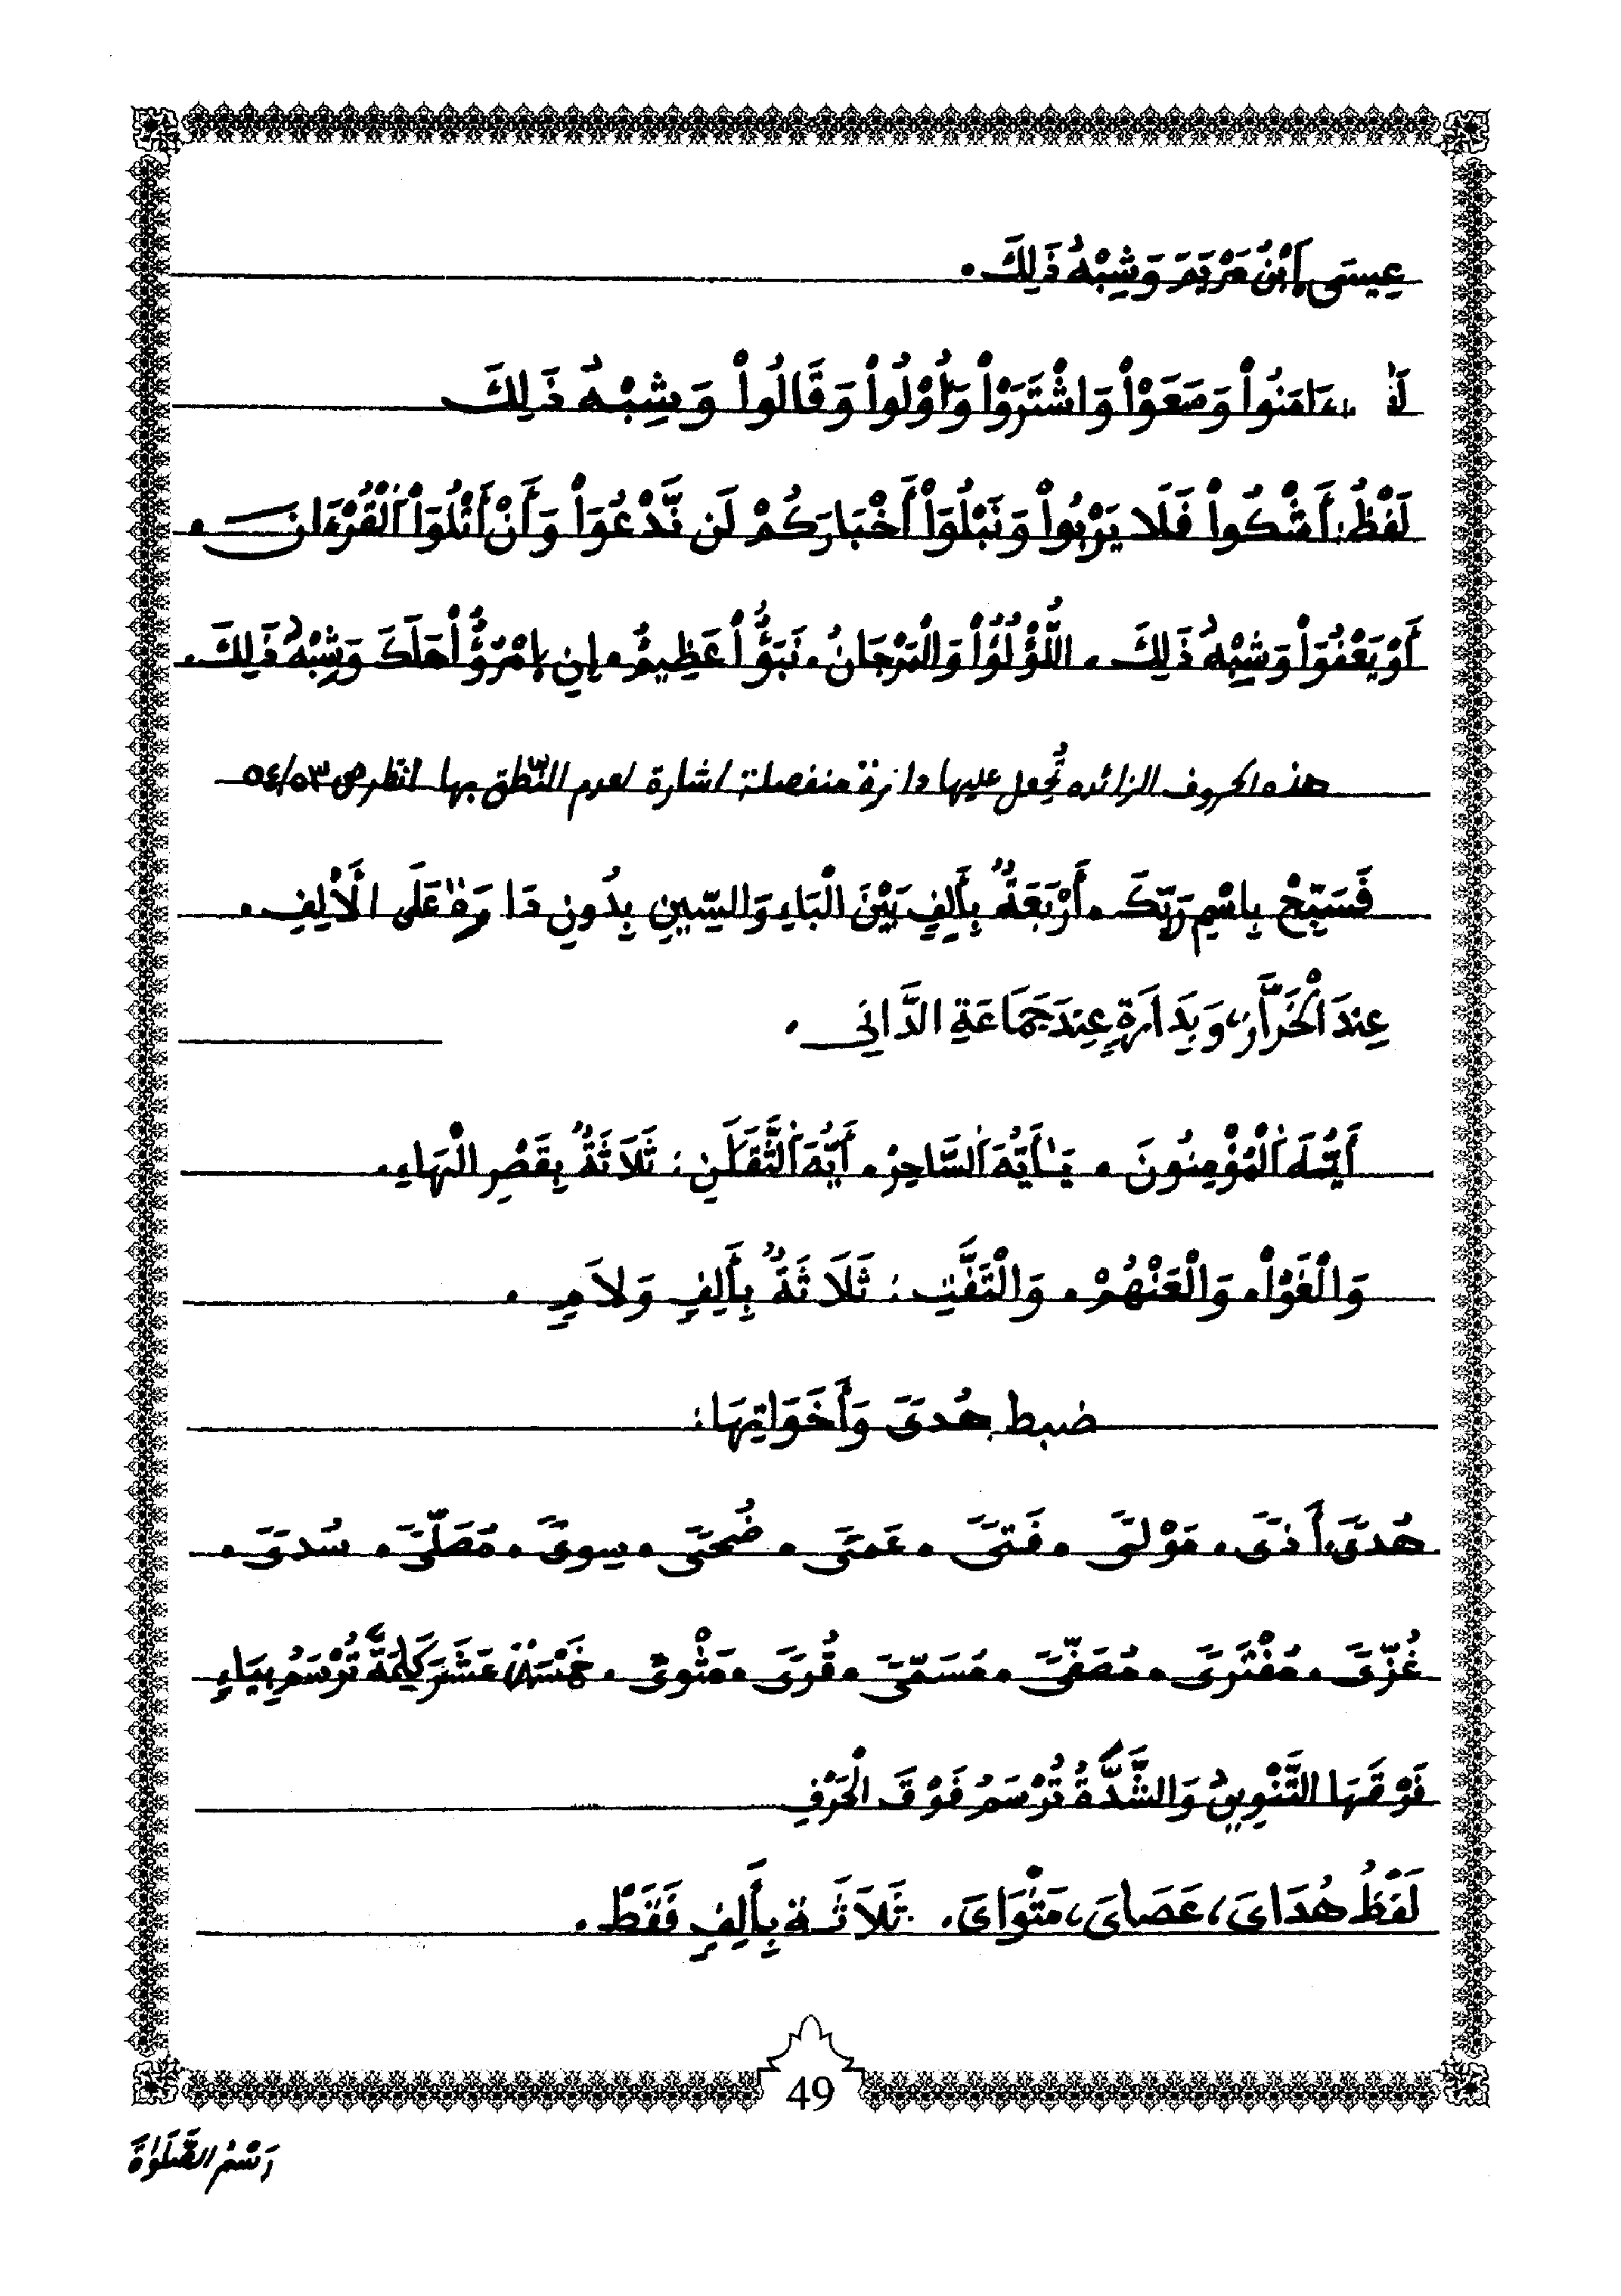 عِيسَى اَبْنُ مَرْيَمَ وَشِبْهُ ذَلِكَ.
ءَامَنُواْ وَسَعَوْاْ وَاشْتَرَوْاْ وَأُوْلُواْ وَقَالُواْ وَشِبْهُ ذَلِكَ
لَفْظُ: أَشْكُواْ فَلَا يَرْبُواْ وَنَبْلُوَاْ أَخْبَارَكُمْ لَن نَّدْعُوَاْ وَأَنْ أَتْلُوَاْ اَلْقُرْءَانَ.
أَوْ يَعْفُوَاْ وَشِبْهُ ذَلِكَ. اللُّؤْلُؤُاْ وَالْمَرْجَانُ. نَبَؤٌاْ عَظِيمٌ. إِنِ اِمْرُؤٌاْ هَلَكَ وَشِبْهُ ذَلِكَ.
هذه الحروف الزائده تُجعل عليها دائرة منفصلة اشارة لعدم النّطق بها انظر ص ٥٤/٥٣
فَسَبِّحْ بِاسْمِ رَبِّكَ. أَرْبَعَةٌ بِأَلِفٍ بَيْنَ الْبَاءِ وَالسِّينِ بِدُونِ دَارَةٍ عَلَى الْأَلِفِ.
عِندَ الْخَرَّازِ، وَبِدَارَةٍ عِندَ جَمَاعَةِ الدَّانِي.
أَيُّهَ اَلْمُؤْمِنُونَ. يَٰأَيُّهَ اَلسَّاحِرُ. أَيُّهَ اَلثَّقَلَنِ: ثَلَاثَةٌ بِقَصْرِ الْهَاءِ.
وَالْغَوْاْ. وَالْعَنْهُمْ. وَالْتَفَّتِ: ثَلَاثَةٌ بِأَلِفٍ وَلَامٍ.
ضبط هُدىً وَأَخَوَاتِهَا:
هُدىً، أَذىً. مَوْلىً. فَتىً. عَمىً. ضُحىً. سِوىً. مُصَلّىً. سُدىً.
غُزّىً. مُفْتَرىً. مُصَفّىً. مُسَمّىً. قُرىً. مَثْوىً. خَمْسَةَ عَشَرَ كَلِمَةً تُرْسَمُ بِيَاءٍ
فَوْقَهَا التَّنْوِينُ وَالشَّدَّةُ تُرْسَمُ فَوْقَ الْحَرْفِ
لَفْظُ هُدَايَ، عَصَايَ، مَثْوَايَ. ثَلَاثَة بِأَلِفٍ فَقَطْ.
49
رَسْمُ الصَّلَوٰةَ